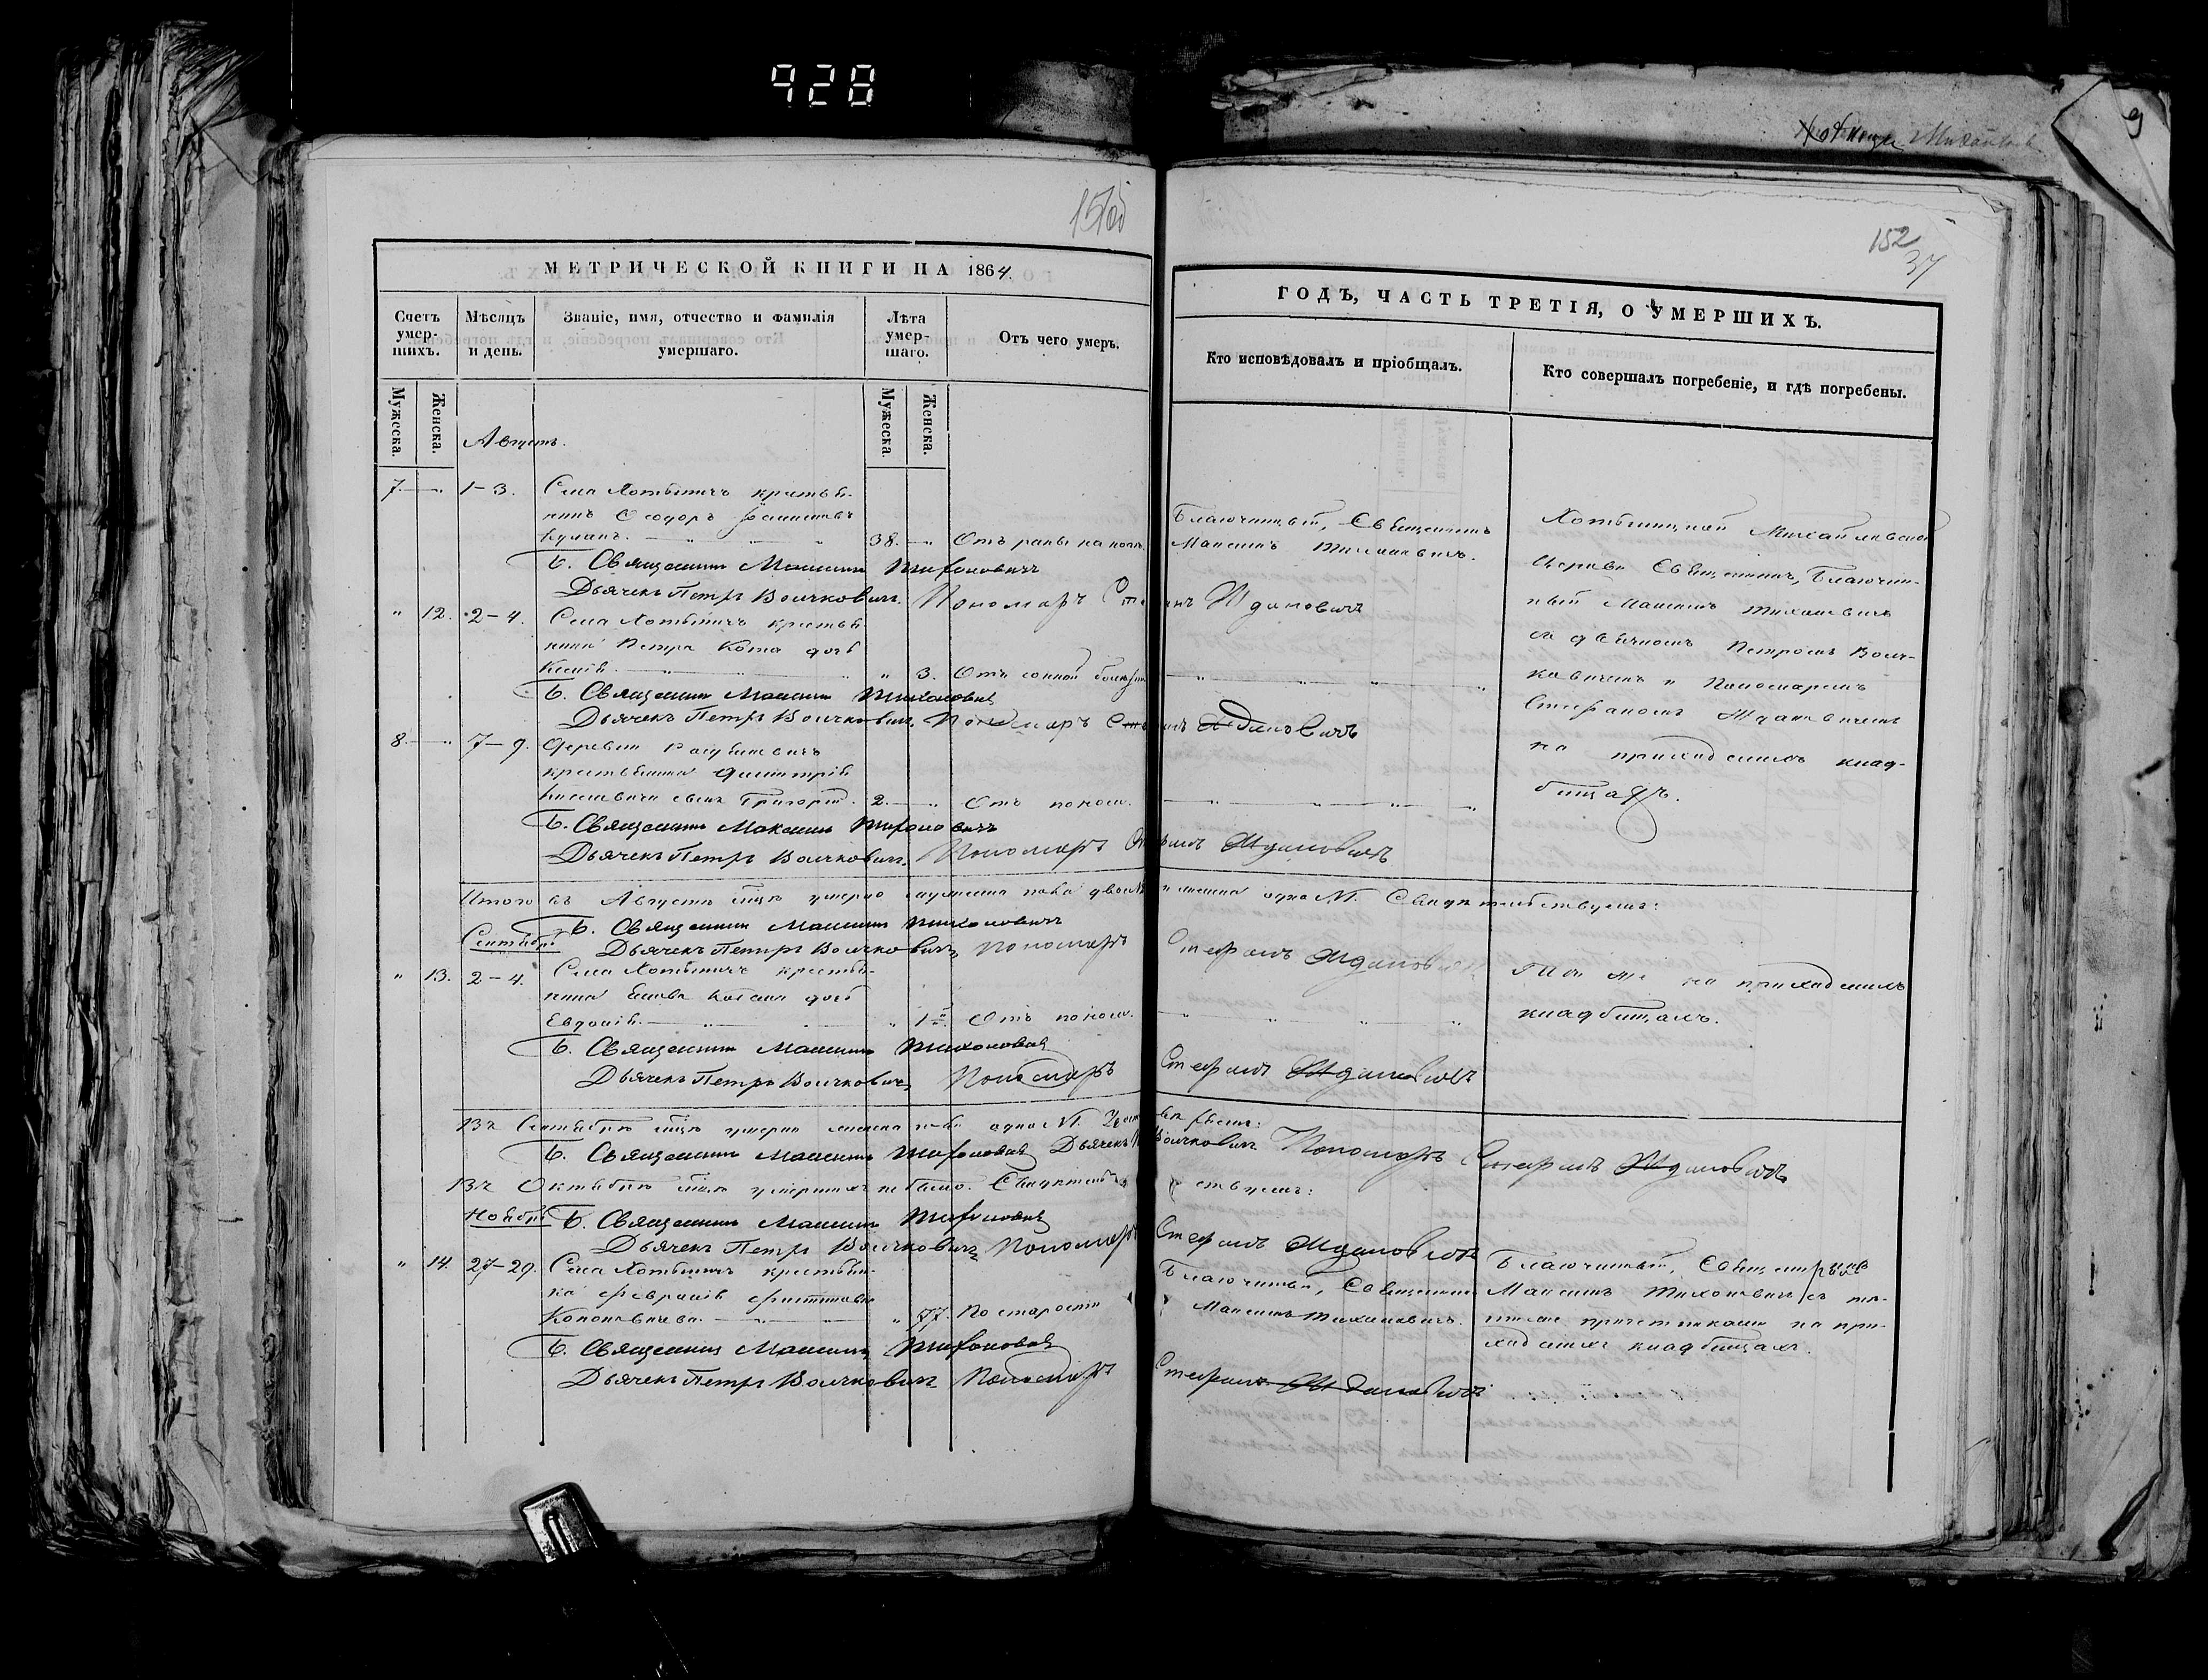 928
151об
152
37
МЕТРИЧЕСКОЙ КНИГИ НА 1864.
ГОДЪ, ЧАСТЬ ТРЕТІЯ, О УМЕРШИХЪ.
Счетъ умер-шихъ.
Мѣсяцъ и день.
Званіе, имя, отчество и фамилія умершаго.
Лѣта умер-шаго.
Отъ чего умеръ.
Кто исповѣдовалъ и пріобщалъ.
Кто совершалъ погребеніе, и гдѣ погребены.
Мужеска.
Женска.
Мужеска.
Женска.
Августъ.
7. — " 1-3. Села Хотыничъ крестья-
нинъ Ѳеодоръ
38. — " Отъ раны на
Благочинный, Священникъ
Максимъ Тихоновичъ.
Б. Священникъ Максимъ Тихоновичъ
Дьячекъ Петръ Волчковичъ. Пономарь Стефанъ Ждановичъ
Хотыницкой Михайловской
Церкви Священникъ, Благочин-
ный Максимъ Тихоновичъ
съ дьячкомъ Петромъ Волч-
ковичемъ и Пономаремъ
Стефаномъ Ждановичемъ
на приходскихъ клад-
бищахъ.
" 12. 2-4. Села Хотыничъ крестья-
нина Петра Кота дочь
" 3. Отъ
Б. Священникъ Максимъ Тихоновичъ
Дьячекъ Петръ Волчковичъ. Пономарь Стефанъ Ждановичъ
8. — " 7-9. Деревни
крестьянина Димитрія
сынъ Григорій. 2. — " Отъ поноса.
Б. Священникъ Максимъ Тихоновичъ
Дьячекъ Петръ Волчковичъ. Пономарь Стефанъ Ждановичъ
Итого въ Августѣ м-цѣ умерло мужеска пола двое и женска одна №1. Свидѣтельствуемъ:
Б. Священникъ Максимъ Тихоновичъ
Дьячекъ Петръ Волчковичъ, Пономарь Стефанъ Ждановичъ
Сентябрь
" 13. 2-4. Села Хотыничъ крестья-
нина дочь
Евдокія. " 1 Отъ поноса.
Тѣ же на приходскихъ
кладбищахъ.
Б. Священникъ Максимъ Тихоновичъ
Дьячекъ Петръ Волчковичъ Пономарь Стефанъ Ждановичъ
Въ Сентябрѣ м-цѣ умерла женска пола одна №1.
Б. Священникъ Максимъ Тихоновичъ Дьячекъ П. Волчковичъ Пономарь Стефанъ Ждановичъ
Въ Октябрѣ м-цѣ умершихъ не было. Свидѣтельствуемъ:
Б. Священникъ Максимъ Тихоновичъ
Дьячекъ Петръ Волчковичъ Пономарь Стефанъ Ждановичъ
Ноябрь
" 14. 27-29. Села Хотыничъ крестьян-
ка Февронія
" 77. По старости
Благочинный, Священникъ
Максимъ Тихоновичъ.
Благочинный, Священникъ
Максимъ Тихоновичъ съ
причетниками на при-
ходскихъ кладбищахъ.
Б. Священникъ Максимъ Тихоновичъ
Дьячекъ Петръ Волчковичъ Пономарь Стефанъ Ждановичъ